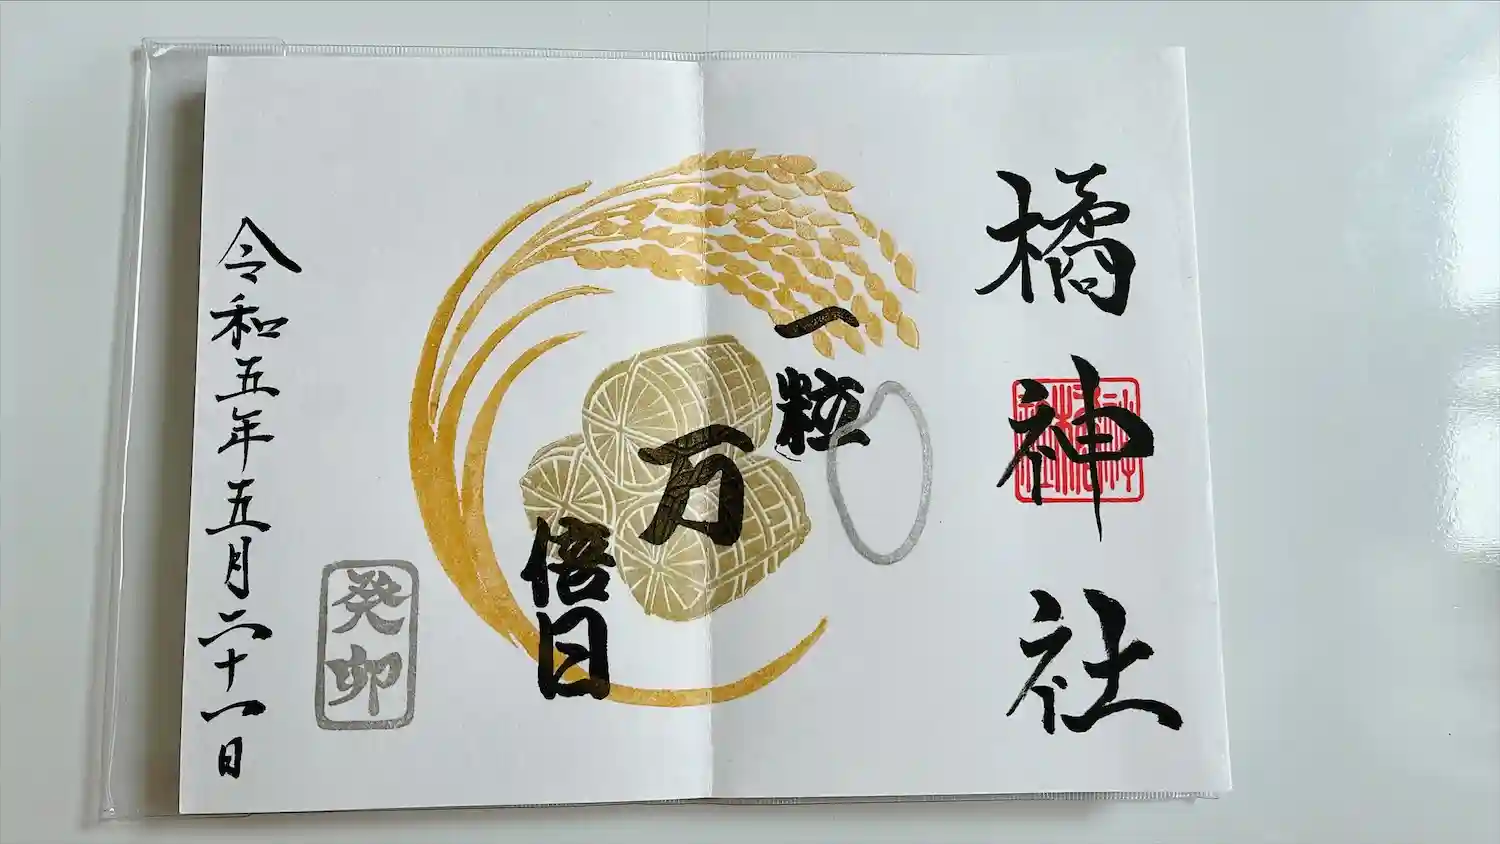 橘神社
一粒
万
倍日
癸卯
令和五年五月二十一日